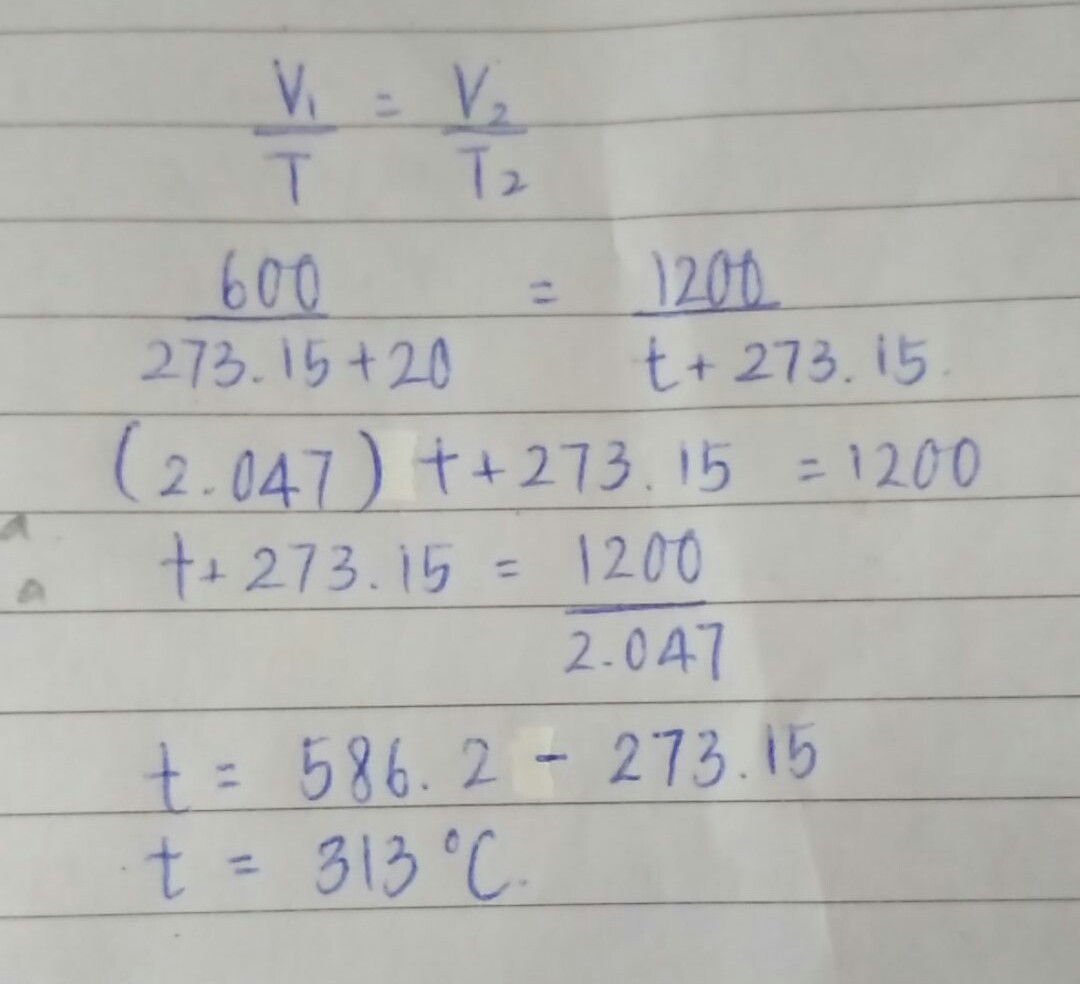 V₁/T = V₂/T₂
600/273.15+20 = 1200/t+273.15.
(2.047) t+273.15 = 1200
t+273.15 = 1200/2.047
t = 586.2 - 273.15
t = 313°C.